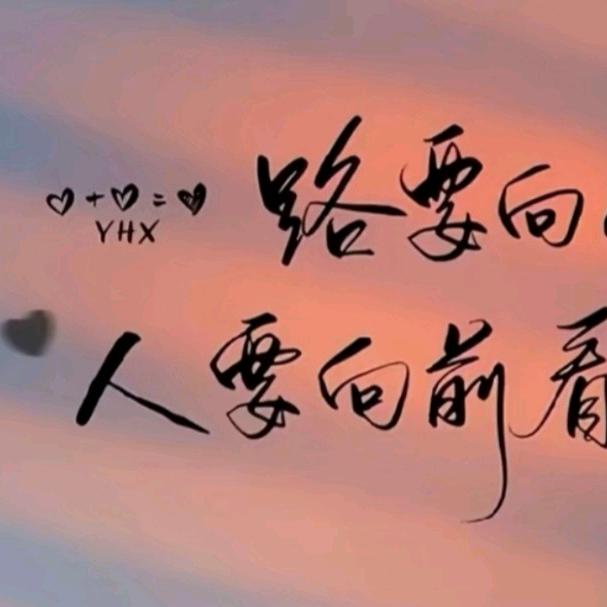 ♡+♡=♥
YHX
路要向
人要向前看